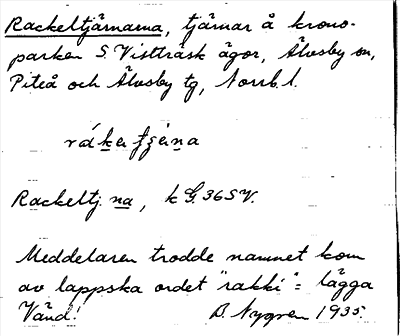 Rackeltjärnarna, tjärnar å krono-
parken S. Vistträsk ägor, Älvsby sn,
Piteå och Älvsby tg, Norrb. l.
Rackeltj. na, k G. 36 SV.
Meddelaren trodde namnet kom
av lappska ordet "rakki" = lägga
Vänd! B. Nygren 1935.